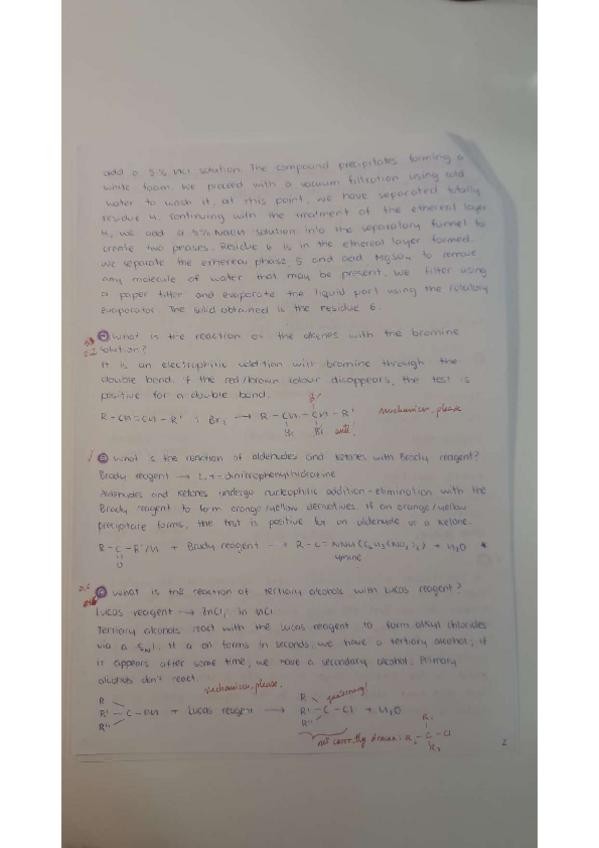 add a 5% HCl solution. The compound precipitates forming a
white foam. We proceed with a vacuum filtration using cold
water to wash it, at this point, we have separated totally
residue 4. Continuing with the treatment of the ethereal layer
4, we add a 5% NaOH solution into the separatory funnel to
create two phases. Residue 6 is in the ethereal layer formed.
We separate the ethereal phase 5 and add MgSO4 to remove
any molecule of water that may be present. We filter using
a paper filter and evaporate the liquid part using the rotatory
evaporator. The solid obtained is the residue 6.
What is the reaction of the alkenes with the bromine
solution?
It is an electrophilic addition with bromine through the
double bond. If the red/brown colour disappears, the test is
positive for a double bond.
R-CH=CH-R' + Br2 → R-CH-CH-R'
Br
Br Br anti!
mechanism, please
What is the reaction of aldehydes and ketones with Brady reagent?
Brady reagent → 2,4-dinitrophenylhydrazine
Aldehydes and ketones undergo nucleophilic addition-elimination with the
Brady reagent to form orange/yellow derivatives. If an orange/yellow
precipitate forms, the test is positive for an aldehyde or a ketone.
R-C-R'/H + Brady reagent → R-C=NNH(C6H3(NO2)2) + H2O
O
imine
What is the reaction of tertiary alcohols with Lucas reagent?
Lucas reagent → ZnCl2 in HCl
Tertiary alcohols react with the Lucas reagent to form alkyl chlorides
via a SN1. If a oil forms in seconds, we have a tertiary alcohol; if
it appears after some time, we have a secondary alcohol. Primary
alcohols don't react.
mechanism, please.
R
R' C-OH + Lucas reagent →
R''
R
R' C-Cl + H2O
R''
not correctly drawn:
R1
R2-C-Cl
R3
2